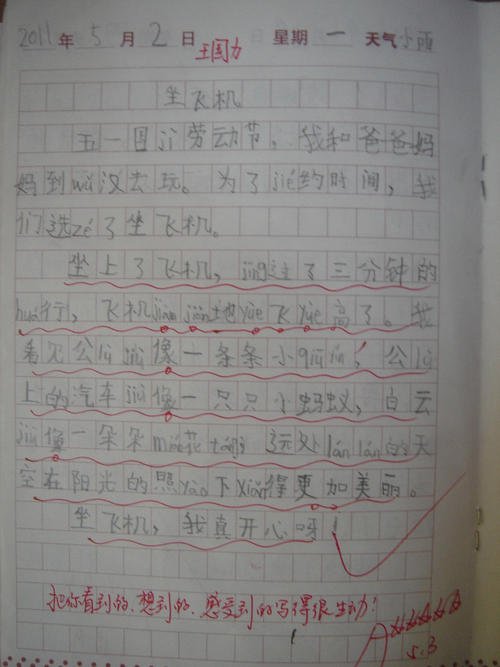 2011年 5 月 2 日 星期 一 天气 小雨
王国力
坐飞机
五一国jì劳动节，我和爸爸妈
妈到wǔ汉去玩。为了jié约时间，我
们选zé了坐飞机。
坐上了飞机，jīng过了三分钟的
huá行，飞机jiàn jiàn地yuè飞yuè高了。我
看见公lù jiù像一条条小qiū yǐn，公lù
上的汽车jiù像一只只小蚂蚁，白云
jiù像一朵朵mián花táng，远处lán lán的天
空在阳光的照yào下xiǎn得更加美丽。
坐飞机，我真开心呀！
把你看到的、想到的、感受到的写得很生动！
5.3